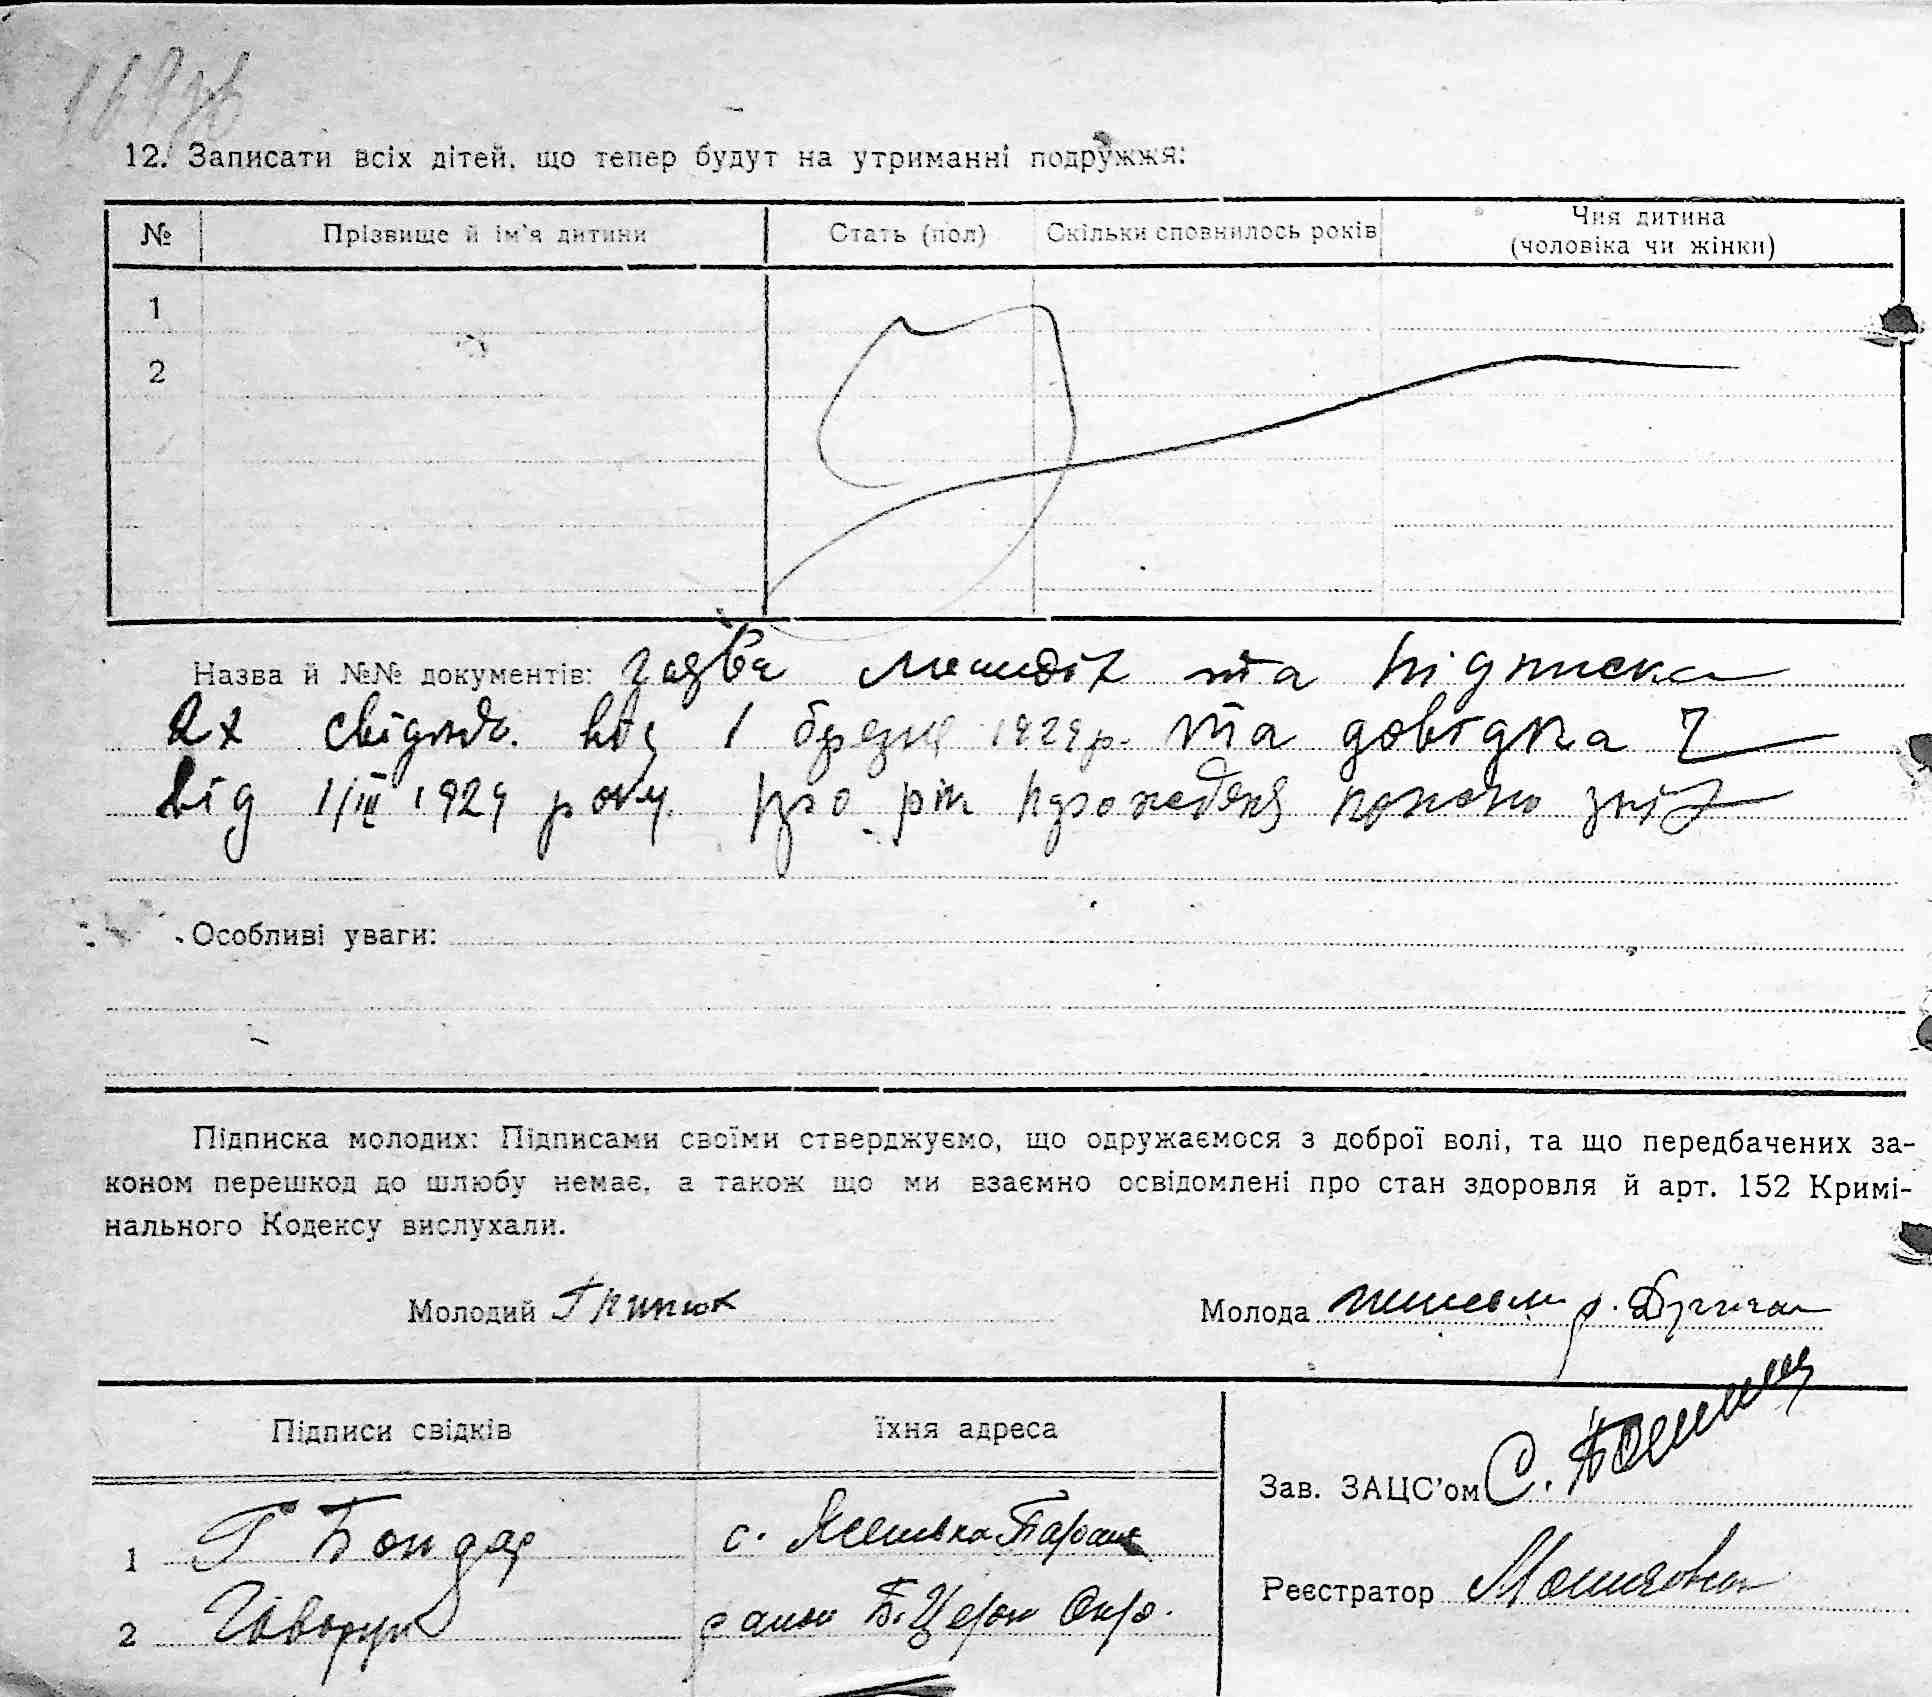 12. Записати всіх дітей, що тепер будут на утриманні подружжя:
№ Прізвище й ім'я дитини Стать (пол) Скільки сповнилось років Чия дитина (чоловіка чи жінки)
1
2
Назва й №№ документів: та підписка
2х від 1 1929 р. та довідка
від 1/III 1929 року. про рік
Особливі уваги:
Підписка молодих: Підписами своїми стверджуємо, що одружаємося з доброї волі, та що передбачених за-
коном перешкод до шлюбу немає, а також що ми взаємно освідомлені про стан здоровля й арт. 152 Кримі-
нального Кодексу вислухали.
Молодий Гринюк Молода
Підписи свідків Їхня адреса
Зав. ЗАЦС'ом С.
1 Г Бондар с.
Реєстратор
2 Говорун району Б. Церк Окр.